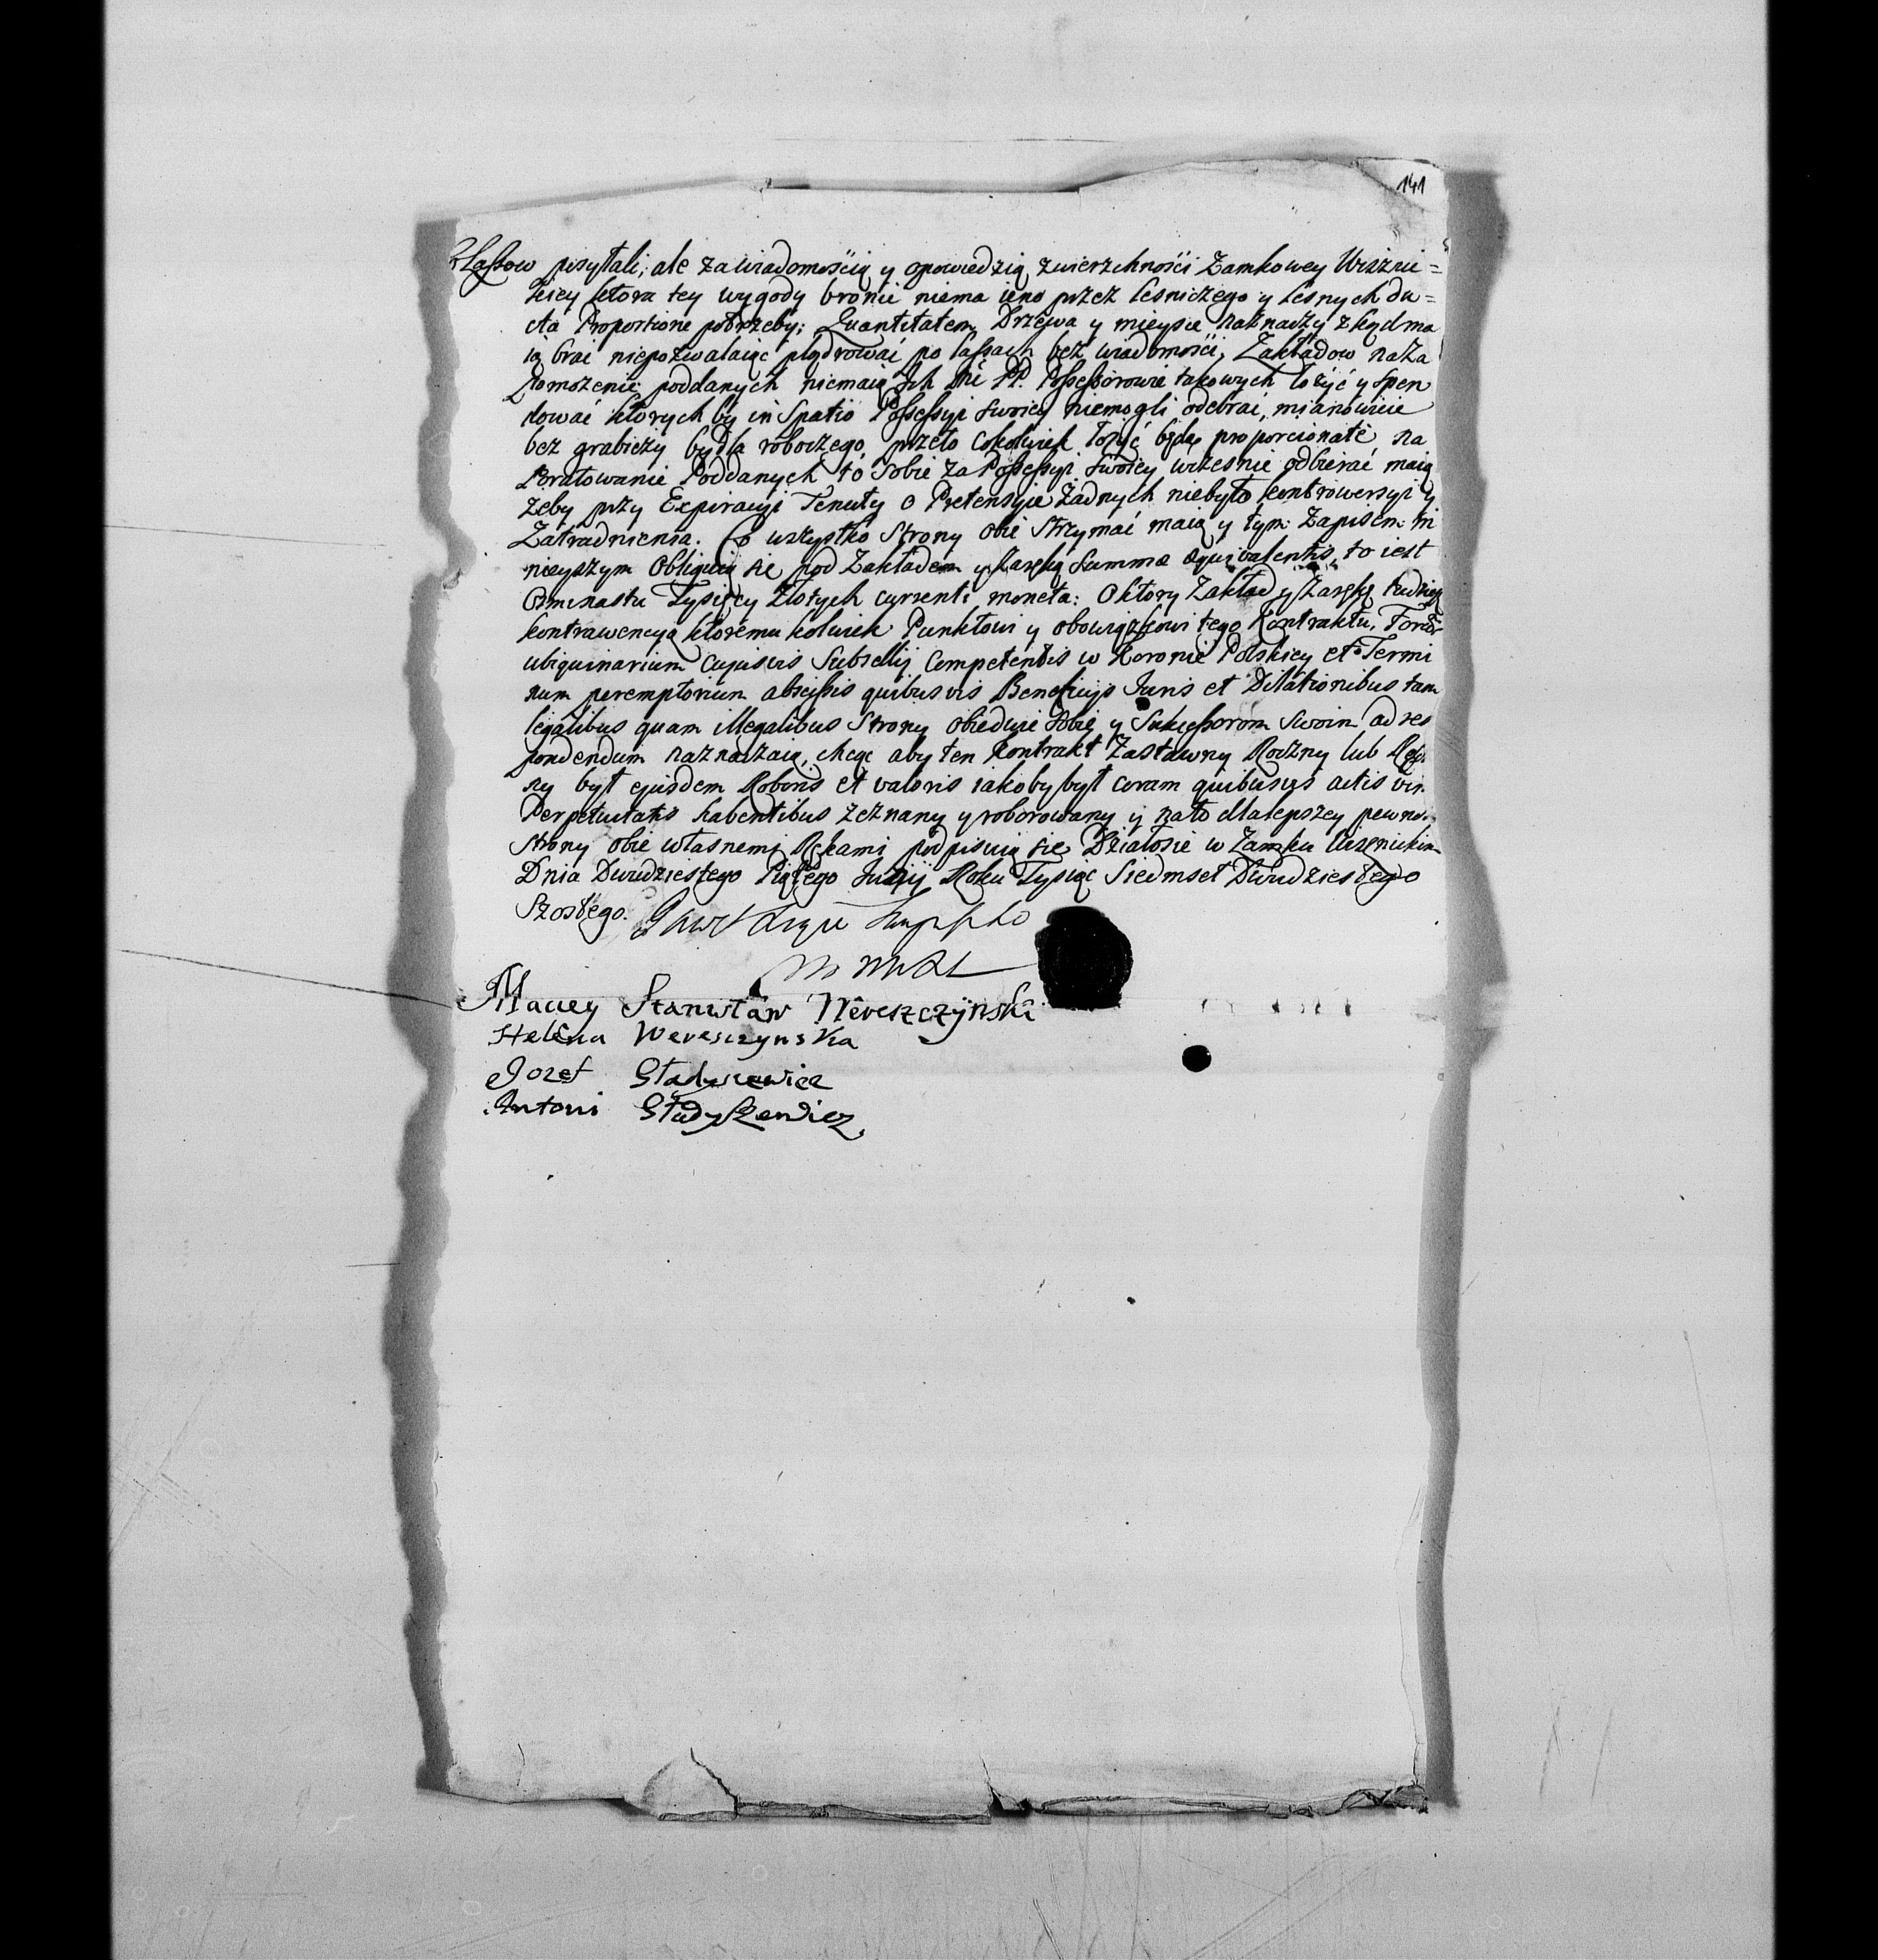 141
Lassow posyłali, ale za wiadomością y opowiedzią zwierzchności Zamkowey Wiżni=
kiey ktora tey wygody bronić niema ieno przez Lesniczego y Lesnych du=
cta Proportione potrzeby; Quantitatem Drzewa y mieysce naznaczy zkąd ma
ią brać niepozwalaiąc plądrować po Lassach bez wiadomości, Zakładow na Za
pomożenie poddanych niemaią Ich Mć PP. Possessorowie takowych łożyć y spen
dować ktorych by in Spatio Possessyi swoiey niemogli odebrać, mianowicie
bez grabieży bydła roboczego, przeto cokolwiek łożyć będą proporcionate na
Bratowanie Poddanych to sobie za Possessyi swoiey wcześnie odbierać maią
żeby przy Expiracyi Tenuty o Pretensyie żadnych niebyło kontrowersyi y
Zatrudnienia. Co wszystko Strony obie strzymać maią y tym Zapisem ni
nieyszym Obliguią się pod Zakładem y Zaręką Summæ æquivalentis, to iest
Osmnastu Tysięcy Złotych currenti moneta: O ktory Zakład y Zarękę tudziesz
kontrawencyą ktoremu kolwiek Punktowi y obowiązkowi tego Kontraktu, Forum
ubiquinarium cujusvis Subsellij Competentis w Koronie Polskiey et Termi
num peremptorium abscissis quibusvis Beneficijs Juris et Dilationibus tam
legalibus quam illegalibus Strony obiedwie sobie y Sukcessorom Swoim ad res
pondendum naznaczaią, chcąc aby ten Kontrakt Zastawny Roczny lub
ny był ejusdem Roboris et valoris iakoby był coram quibusvis actis vim
Perpetuitatis habentibus zeznany y roborowany y na to dla lepszey pewno.
Strony obie własnemi Rękami podpisuią się Działo się w Zamku
Dnia Dwudziestego Piątego Julij Roku Tysiąc Siedmset Dwudziestego
Szostego.
Maciey Stanisław Wereszczÿnski
Helena Wereszczynska
Jozef Gładyszewicz
Antoni Gładyszewicz